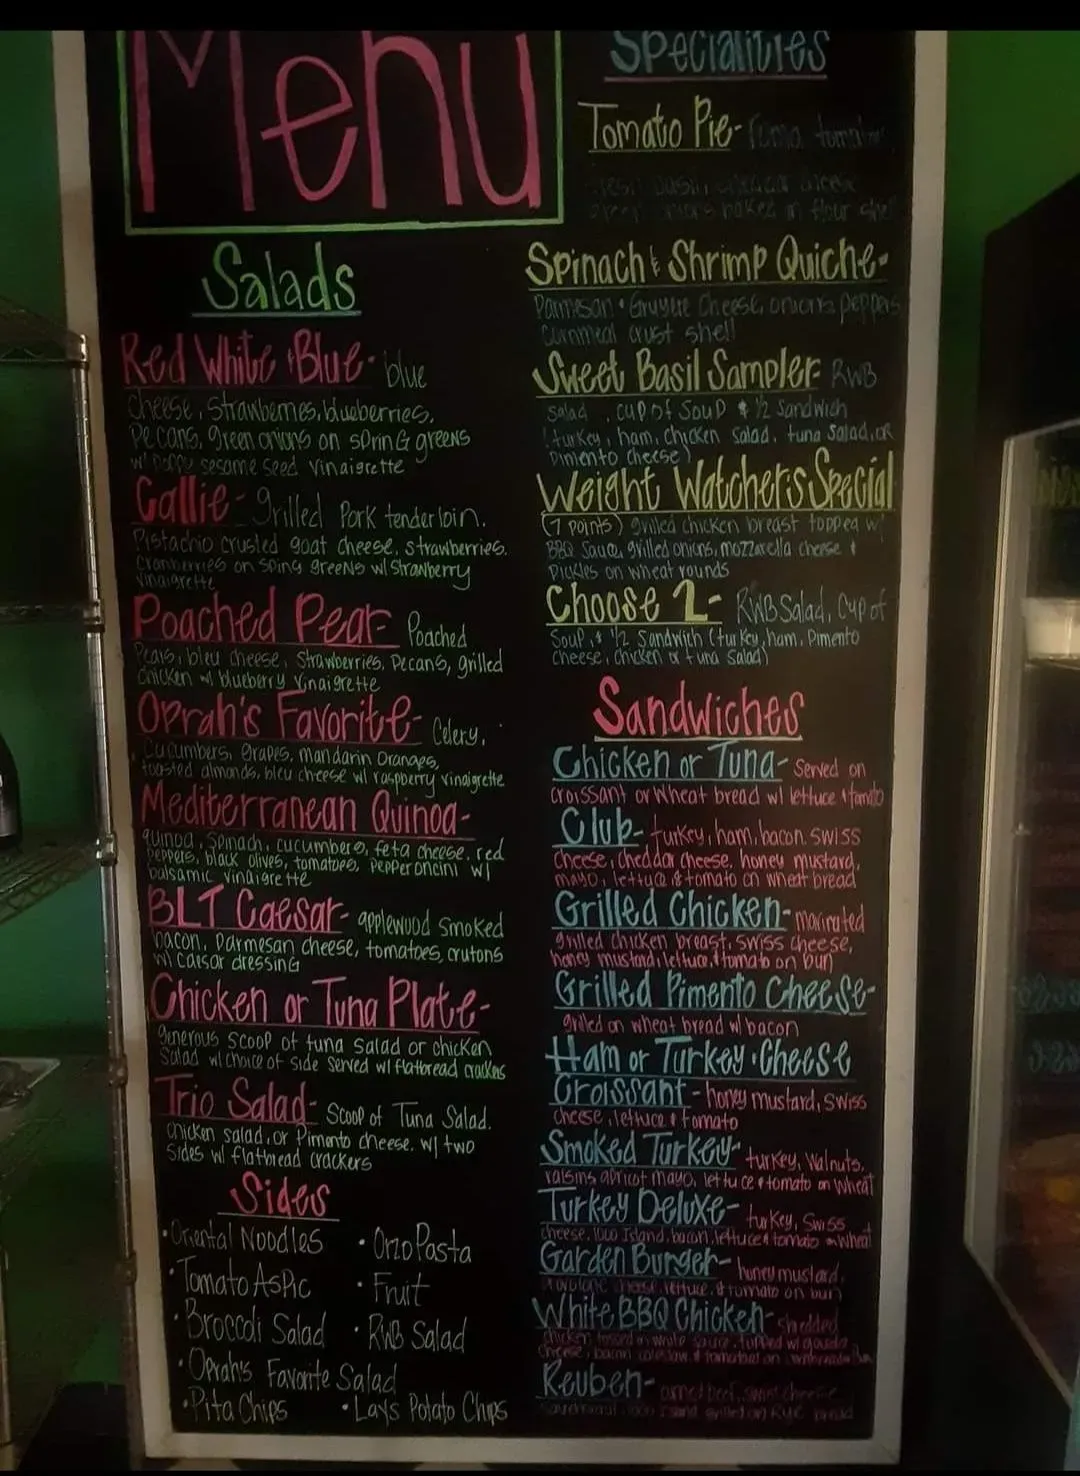 Menu
Salads
Red White & Blue- blue
cheese, strawberries, blueberries,
pecans, green onions on spring greens
w/ poppy sesame seed vinaigrette
Callie- grilled Pork tenderloin,
Pistachio crusted goat cheese, strawberries,
cranberries on spring greens w/ strawberry
vinaigrette
Poached Pear- Poached
Pears, bleu cheese, strawberries, Pecans, grilled
chicken w/ blueberry vinaigrette
Oprah's Favorite- Celery,
cucumbers, grapes, mandarin oranges,
toasted almonds, bleu cheese w/ raspberry vinaigrette
Mediterranean Quinoa-
quinoa, spinach, cucumbers, feta cheese, red
peppers, black olives, tomatoes, pepperoncini w/
balsamic vinaigrette
BLT Caesar- applewood smoked
bacon, Parmesan cheese, tomatoes, crutons
w/ caesar dressing
Chicken or Tuna Plate-
generous scoop of tuna salad or chicken
salad w/ choice of side served w/ flatbread crackers
Trio Salad- Scoop of Tuna Salad,
chicken salad, or Pimento cheese, w/ two
sides w/ flatbread crackers
Sides
•Oriental Noodles •Orzo Pasta
•Tomato Aspic •Fruit
•Broccoli Salad •RWB Salad
•Oprah's Favorite Salad
•Pita Chips •Lays Potato Chips
Specialities
Tomato Pie- roma tomatoes
fresh basil, cheddar cheese
green onions baked in flour shell
Spinach & Shrimp Quiche-
Parmesan + Gruyere Cheese, onions, peppers
cornmeal crust shell
Sweet Basil Sampler- RWB
salad, cup of soup & 1/2 Sandwich
(turkey, ham, chicken salad, tuna salad, or
pimento cheese)
Weight Watcher's Special
(7 points) grilled chicken breast topped w/
BBQ sauce, grilled onions, mozzarella cheese &
pickles on wheat rounds
Choose 2- RWB Salad, Cup of
Soup, & 1/2 Sandwich (turkey, ham, Pimento
cheese, chicken or tuna salad)
Sandwiches
Chicken or Tuna- Served on
croissant or wheat bread w/ lettuce & tomato
Club- turkey, ham, bacon, swiss
cheese, cheddar cheese, honey mustard,
mayo, lettuce & tomato on wheat bread
Grilled Chicken- marinated
grilled chicken breast, swiss cheese,
honey mustard, lettuce, & tomato on bun
Grilled Pimento Cheese-
grilled on wheat bread w/ bacon
Ham or Turkey & Cheese
Croissant- honey mustard, swiss
cheese, lettuce & tomato
Smoked Turkey- turkey, walnuts,
raisins, apricot mayo, lettuce & tomato on wheat
Turkey Deluxe- turkey, Swiss
cheese, 1000 Island, bacon, lettuce & tomato on wheat
Garden Burger- honey mustard,
provolone cheese, lettuce, & tomato on bun
White BBQ Chicken- shredded
chicken tossed in white sauce, topped w/ gouda
cheese, bacon, coleslaw, & tomatoes on bun
Reuben- corned beef, swiss cheese
sauerkraut, 1000 island grilled on Rye bread